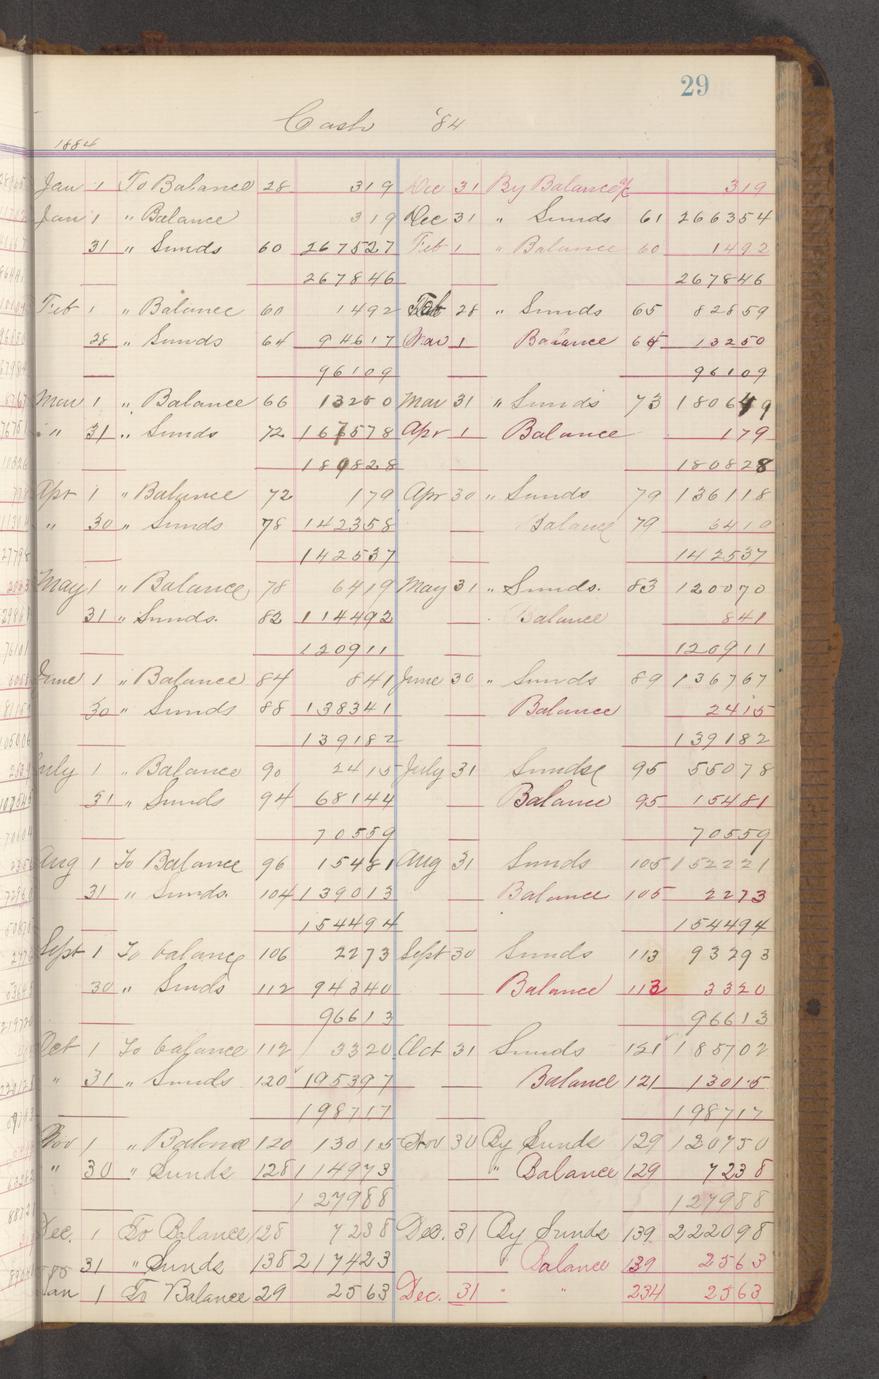 29
Cash '84
1884
Jan 1 To Balance 28 319 Dec 31 By Balance % 319
Jan 1 " Balance 319 Dec 31 " Sunds 61 266354
31 " Sunds 60 267527 Feb 1 " Balance 60 1492
267846 267846
Feb 1 " Balance 60 1492 Feb 28 " Sunds 65 82859
28 " Sunds 64 94617 Mar 1 Balance 64 13250
96109 96109
Mar 1 " Balance 66 13250 Mar 31 " Sunds 73 180649
" 31 " Sunds 72 167578 Apr 1 Balance 179
180828 180828
Apr 1 " Balance 72 179 Apr 30 " Sunds 79 136118
" 30 " Sunds 78 142358 Balance 79 6419
142537 142537
May 1 " Balance 78 6419 May 31 " Sunds. 83 120070
31 " Sunds. 82 114492 Balance 841
120911 120911
June 1 " Balance 84 841 June 30 " Sunds 89 136767
30 " Sunds 88 138341 Balance 2415
139182 139182
July 1 " Balance 90 2415 July 31 Sunds 95 55078
31 " Sunds 94 68144 Balance 95 15481
70559 70559
Aug 1 To Balance 96 15481 Aug 31 Sunds 105 152221
31 " Sunds. 104 139013 Balance 105 2273
154494 154494
Sept 1 To balance 106 2273 Sept 30 Sunds 113 93293
30 " Sunds 112 94340 Balance 113 3320
96613 96613
Oct 1 To balance 112 3320 Oct 31 Sunds 121 185702
" 31 " Sunds 120 195397 Balance 121 13015
198717 198717
Nov 1 " Balance 120 13015 Nov 30 By Sunds 129 120750
" 30 " Sunds 128 114973 " Balance 129 7238
127988 127988
Dec. 1 To Balance 128 7238 Dec. 31 By Sunds 139 222098
31 " Sunds 138 217423 " Balance 139 2563
Jan 1 To Balance 29 2563 Dec. 31 " " 234 2563